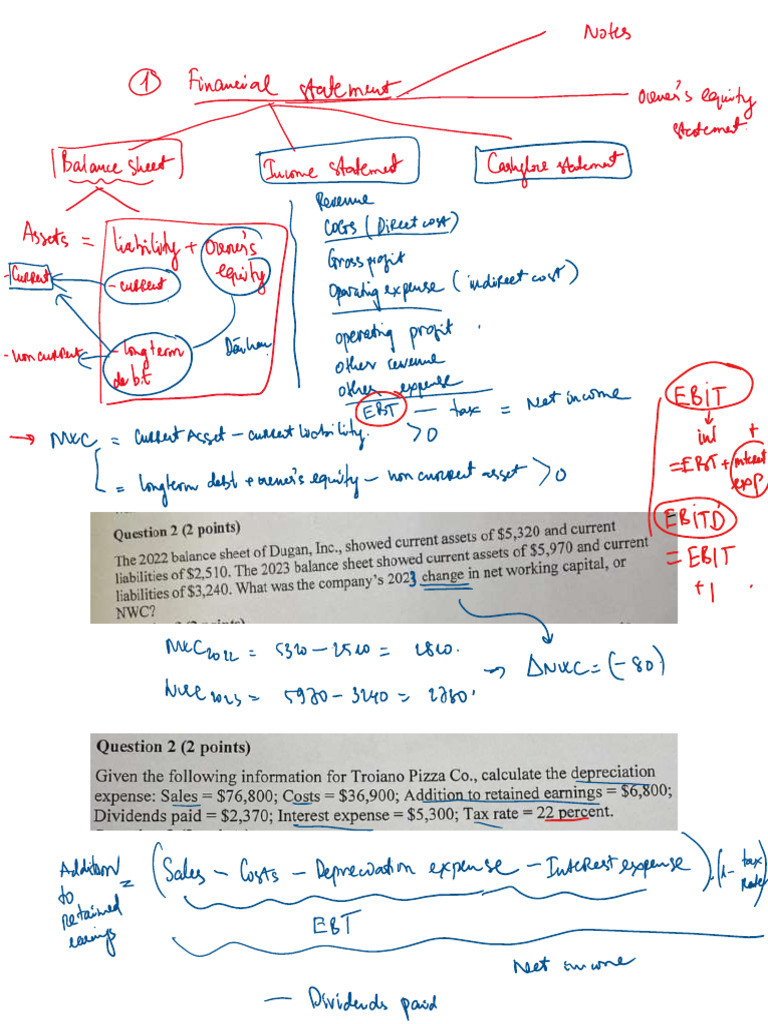 Notes
① Financial statement
owner's equity
statement
Balance sheet
Income statement
Cashflow statement
Revenue
COGS (Direct cost)
Gross profit
Operating expense (indirect cost)
operating profit
other revenue
other expense
EBT - tax = Net income
Assets = liability + owner's
equity
- Current
- current
- non current
- long term
debt
EBIT
int +
= EBT + interest
exp
EBITD
= EBIT
+
→ NWC = current Asset - current liability > 0
= long term debt + owner's equity - non current asset > 0
Question 2 (2 points)
The 2022 balance sheet of Dugan, Inc., showed current assets of $5,320 and current
liabilities of $2,510. The 2023 balance sheet showed current assets of $5,970 and current
liabilities of $3,240. What was the company's 2023 change in net working capital, or
NWC?
NWC2022 = 5320 - 2510 = 2810.
→ ΔNWC = (-80)
NWC2023 = 5970 - 3240 = 2730.
Question 2 (2 points)
Given the following information for Troiano Pizza Co., calculate the depreciation
expense: Sales = $76,800; Costs = $36,900; Addition to retained earnings = $6,800;
Dividends paid = $2,370; Interest expense = $5,300; Tax rate = 22 percent.
Addition
to
retained
earnings
= (Sales - Costs - Depreciation expense - Interest expense).(1- tax
rate)
EBT
Net income
- Dividends paid